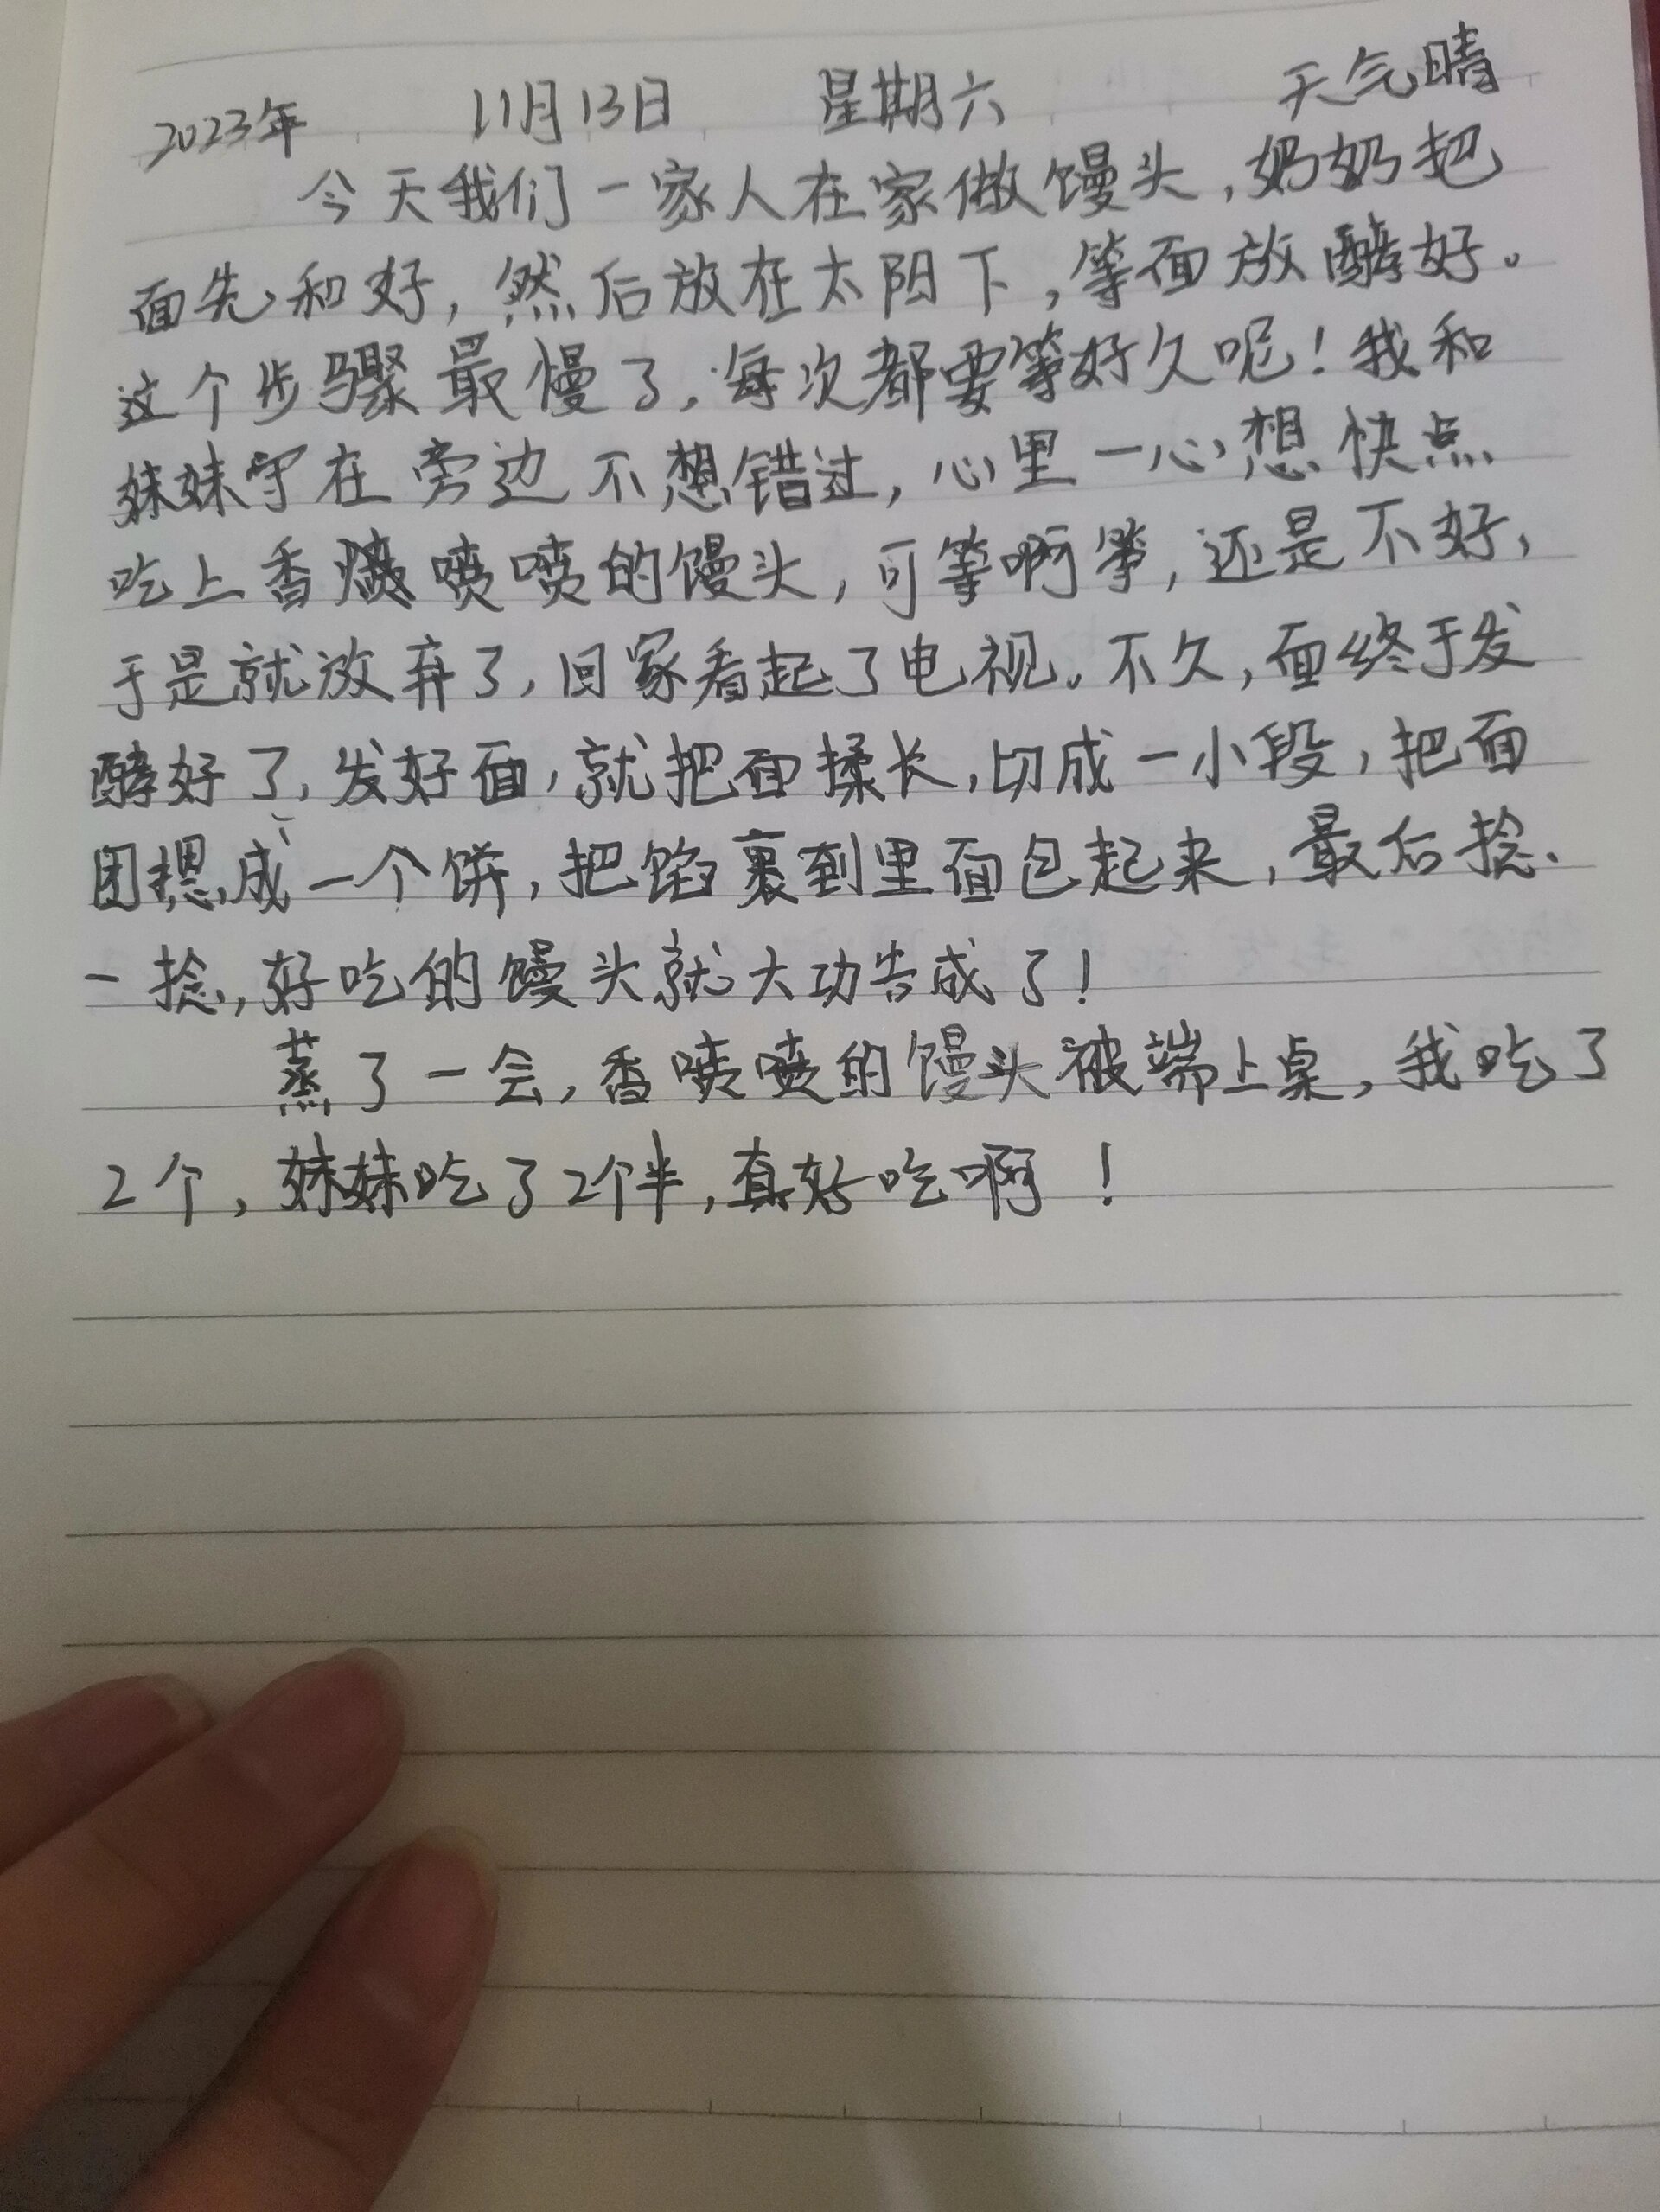 2023年 11月13日 星期六 天气晴
今天我们一家人在家做馒头,奶奶把
面先和好,然后放在太阳下,等面放酵好。
这个步骤最慢了,每次都要等好久呢!我和
妹妹守在旁边不想错过,心里一心想快点
吃上香喷喷的馒头,可等啊等,还是不好,
于是就放弃了,回家看起了电视。不久,面终于发
酵好了,发好面,就把面揉长,切成一小段,把面
团摁成一个饼,把馅裹到里面包起来,最后捻
一捻,好吃的馒头就大功告成了!
蒸了一会,香喷喷的馒头被端上桌,我吃了
2个,妹妹吃了2个半,真好吃啊!